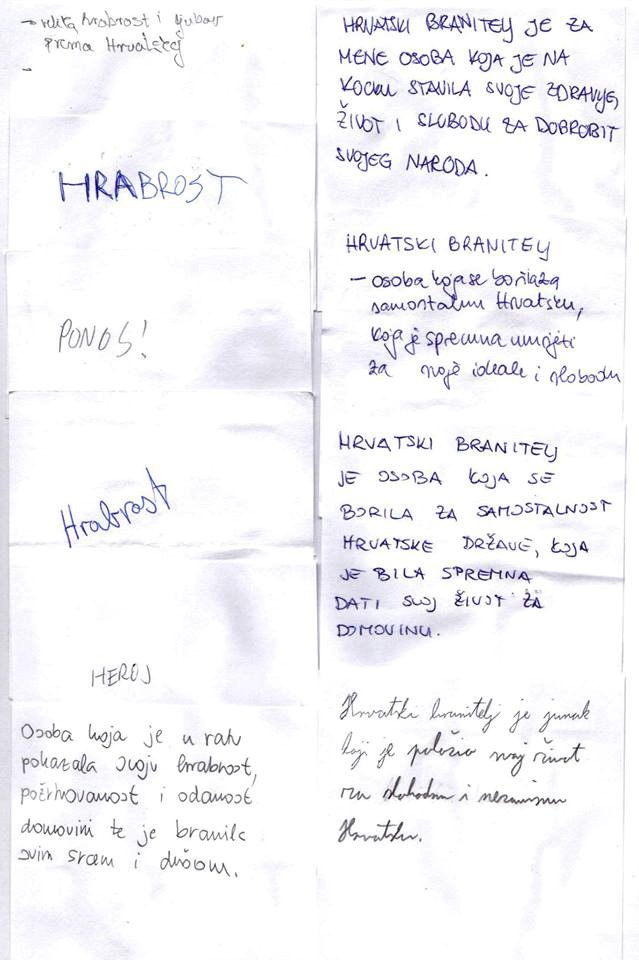 - velika hrabrost i ljubav
prema Hrvatskoj
-
HRABROST
PONOS!
Hrabrost
HEROJ
Osoba koja je u ratu
pokazala svoju hrabrost,
požrtvovanost i odanost
domovini te je branila
svim srcem i dušom.
HRVATSKI BRANITELJ JE ZA
MENE OSOBA KOJA JE NA
KOCKU STAVILA SVOJE ZDRAVLJE,
ŽIVOT I SLOBODU ZA DOBROBIT
SVOJEG NARODA.
HRVATSKI BRANITELJ
- osoba koja se borila za
samostalnu Hrvatsku,
koja je spremna umrijeti
za svoje ideale i slobodu
HRVATSKI BRANITELJ
JE OSOBA KOJA SE
BORILA ZA SAMOSTALNOST
HRVATSKE DRŽAVE, KOJA
JE BILA SPREMNA
DATI SVOJ ŽIVOT ZA
DOMOVINU.
Hrvatski branitelj je junak
koji je položio svoj život
za slobodnu i nezavisnu
Hrvatsku.